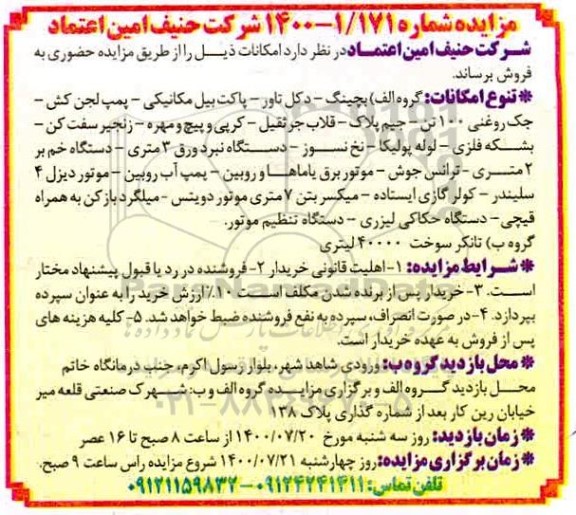 مزایده شماره ۱/۱۷۱-۱۴۰۰ شرکت حنیف امین اعتماد
شرکت حنیف امین اعتماد در نظر دارد امکانات ذیل را از طریق مزایده حضوری به
فروش برساند.
* تنوع امکانات: گروه الف) بچینگ - دکل تاور - پاکت بیل مکانیکی - پمپ لجن کش -
جک روغنی ۱۰۰ تن - جیم پلاک - قلاب جرثقیل - کرپی و پیچ و مهره - زنجیر سفت کن -
بشکه فلزی - لوله پولیکا - نخ نسوز - دستگاه نبرد ورق ۳ متری - دستگاه خم بر
۲ متری - ترانس جوش - موتور برق یاماها و روبین - پمپ آب روبین - موتور دیزل ۴
سلیندر - کولر گازی ایستاده - میکسر بتن ۷ متری موتور دویتس - میلگرد باز کن به همراه
قیچی - دستگاه حکاکی لیزری - دستگاه تنظیم موتور.
گروه ب) تانکر سوخت ۴۰۰۰۰ لیتری
* شرایط مزایده: ۱- اهلیت قانونی خریدار ۲- فروشنده در رد یا قبول پیشنهاد مختار
است. ۳- خریدار پس از برنده شدن مکلف است ۱۰٪ ارزش خرید را به عنوان سپرده
بپردازد. ۴- در صورت انصراف، سپرده به نفع فروشنده ضبط خواهد شد. ۵- کلیه هزینه های
پس از فروش به عهده خریدار است.
* محل بازدید گروه ب: ورودی شاهد شهر، بلوار رسول اکرم، جنب درمانگاه خاتم
محل بازدید گروه الف و برگزاری مزایده گروه الف و ب: شهرک صنعتی قلعه میر
خیابان رین کار بعد از شماره گذاری پلاک ۱۳۸
* زمان بازدید: روز سه شنبه مورخ ۱۴۰۰/۰۷/۲۰ از ساعت ۸ صبح تا ۱۶ عصر
* زمان برگزاری مزایده: روز چهارشنبه ۱۴۰۰/۰۷/۲۱ شروع مزایده راس ساعت ۹ صبح.
تلفن تماس: ۰۹۱۲۴۲۴۱۴۱۱ - ۰۹۱۲۱۱۵۹۸۳۷
ParsNamadData